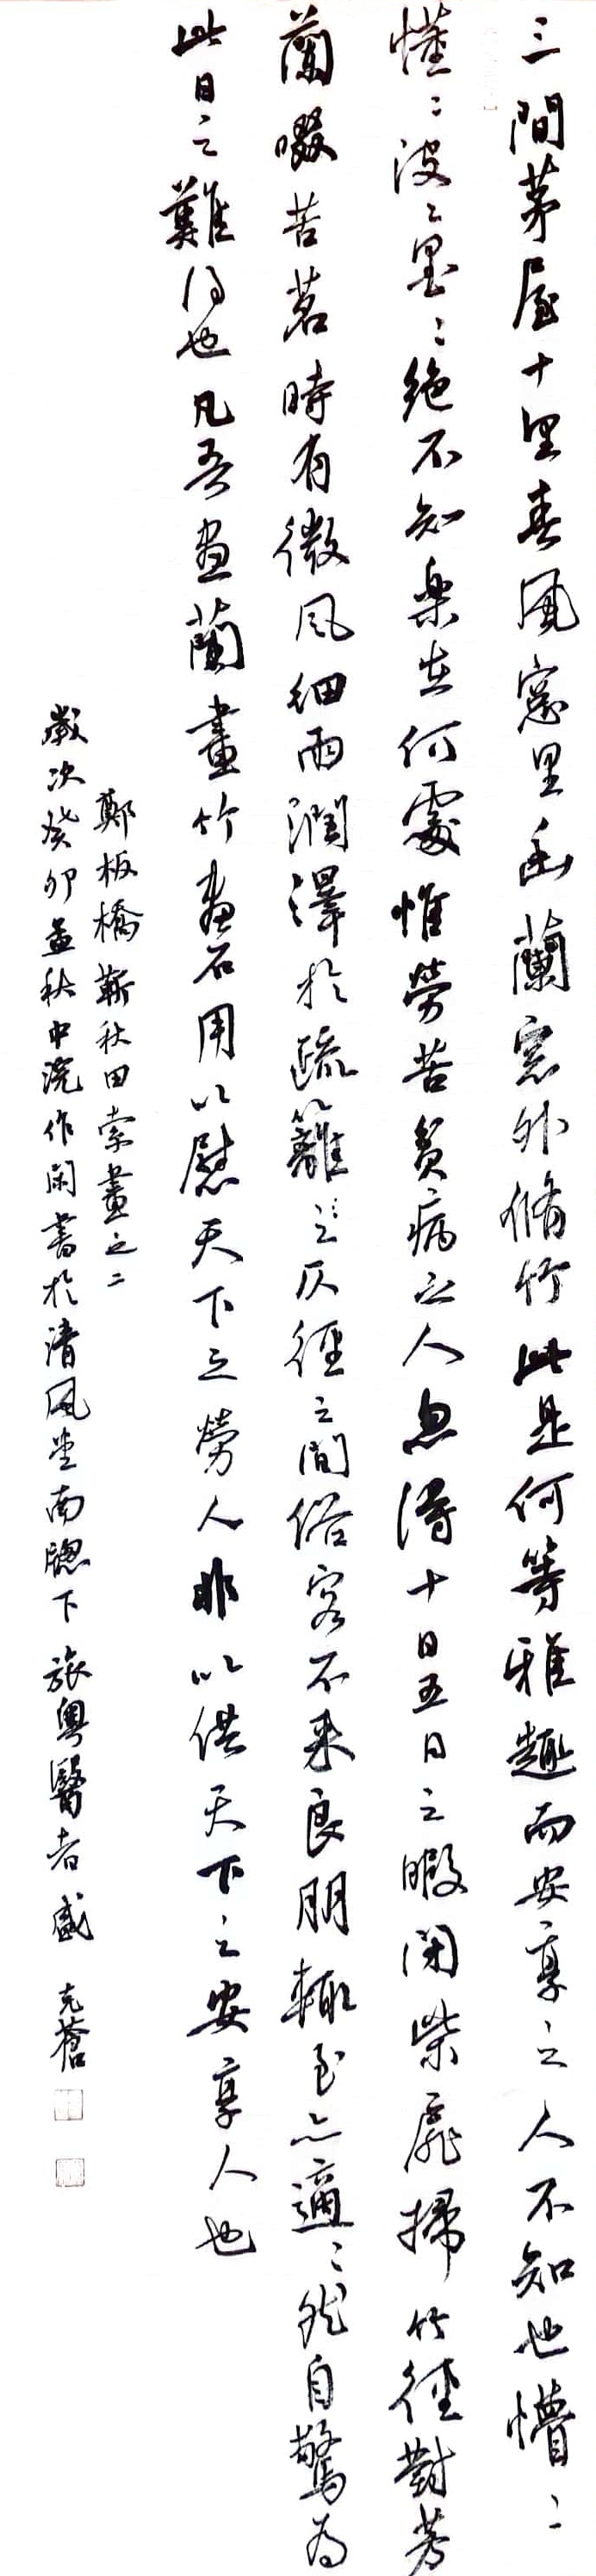 三間茅屋十里春風窓里幽蘭窓外脩竹此是何等雅趣而安享之人不知也懵〻
懂〻没〻墨〻絶不知樂在何處惟勞苦貧病之人忽得十日五日之暇閉柴扉掃竹徑對芳
蘭啜苦茗時有微風細雨潤澤於疏籬仄徑之間俗客不来良朋輒至亦適〻然自驚為
此日之難得也凡吾畫蘭畫竹畫石用以慰天下之勞人非以供天下之安享人也
鄭板橋靳秋田索畫之二
歲次癸卯孟秋中浣作閑書於清風堂南牕下旅粵醫者盛克蒼